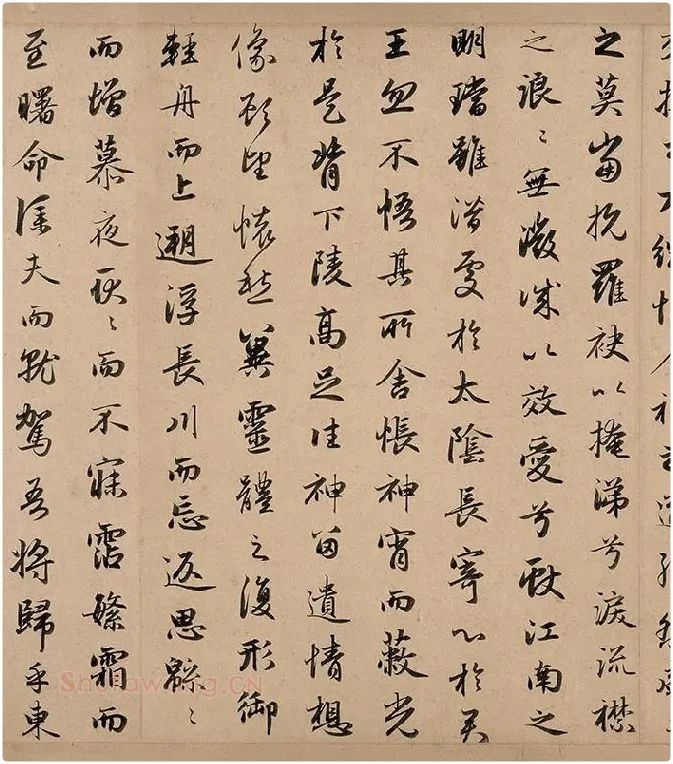 之莫當抗羅袂以掩涕兮淚流襟
之浪〻無微誠以效愛兮獻江南之
明璫雖潛處於太陰長寄心於君
王忽不悟其所舍悵神宵而蔽光
於是背下陵高足往神留遺情想
像顧望懷愁冀靈體之復形御
輕舟而上遡浮長川而忘返思綿〻
而增慕夜耿〻而不寐霑繁霜而
至曙命僕夫而就駕吾將歸乎東